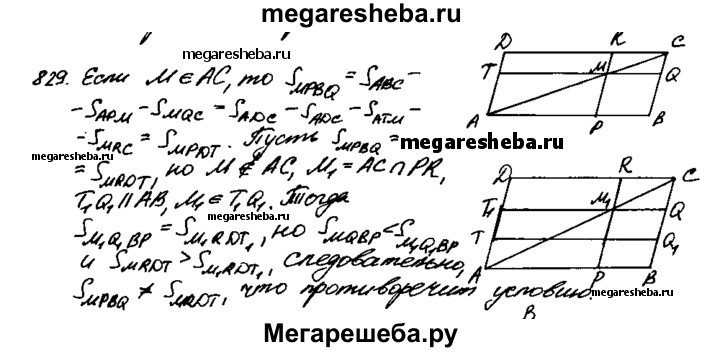 megaresheba.ru
megaresheba.ru
829. Если M ∈ AC, то S_MPBQ = S_ABC −
− S_APM − S_MQC = S_ADC − S_ADC − S_ATM −
− S_MRC = S_MPDT. Пусть S_MPBQ =
= S_MRDT, но M ∉ AC, M₁ = AC ∩ PR,
T₁Q₁ ∥ AB, M₁ ∈ T₁Q₁. Тогда
S_M₁Q₁BP = S_M₁RDT₁, но S_MQBP < S_M₁Q₁BP
и S_MRDT > S_M₁RDT₁, следовательно,
S_MPBQ ≠ S_MRDT, что противоречит условию.
в
megaresheba.ru
megaresheba.ru
megaresheba.ru
megaresheba.ru
D R C
T M Q
A P B
D R C
T₁ M₁ Q
T Q₁
A P B
Мегарешеба.ру